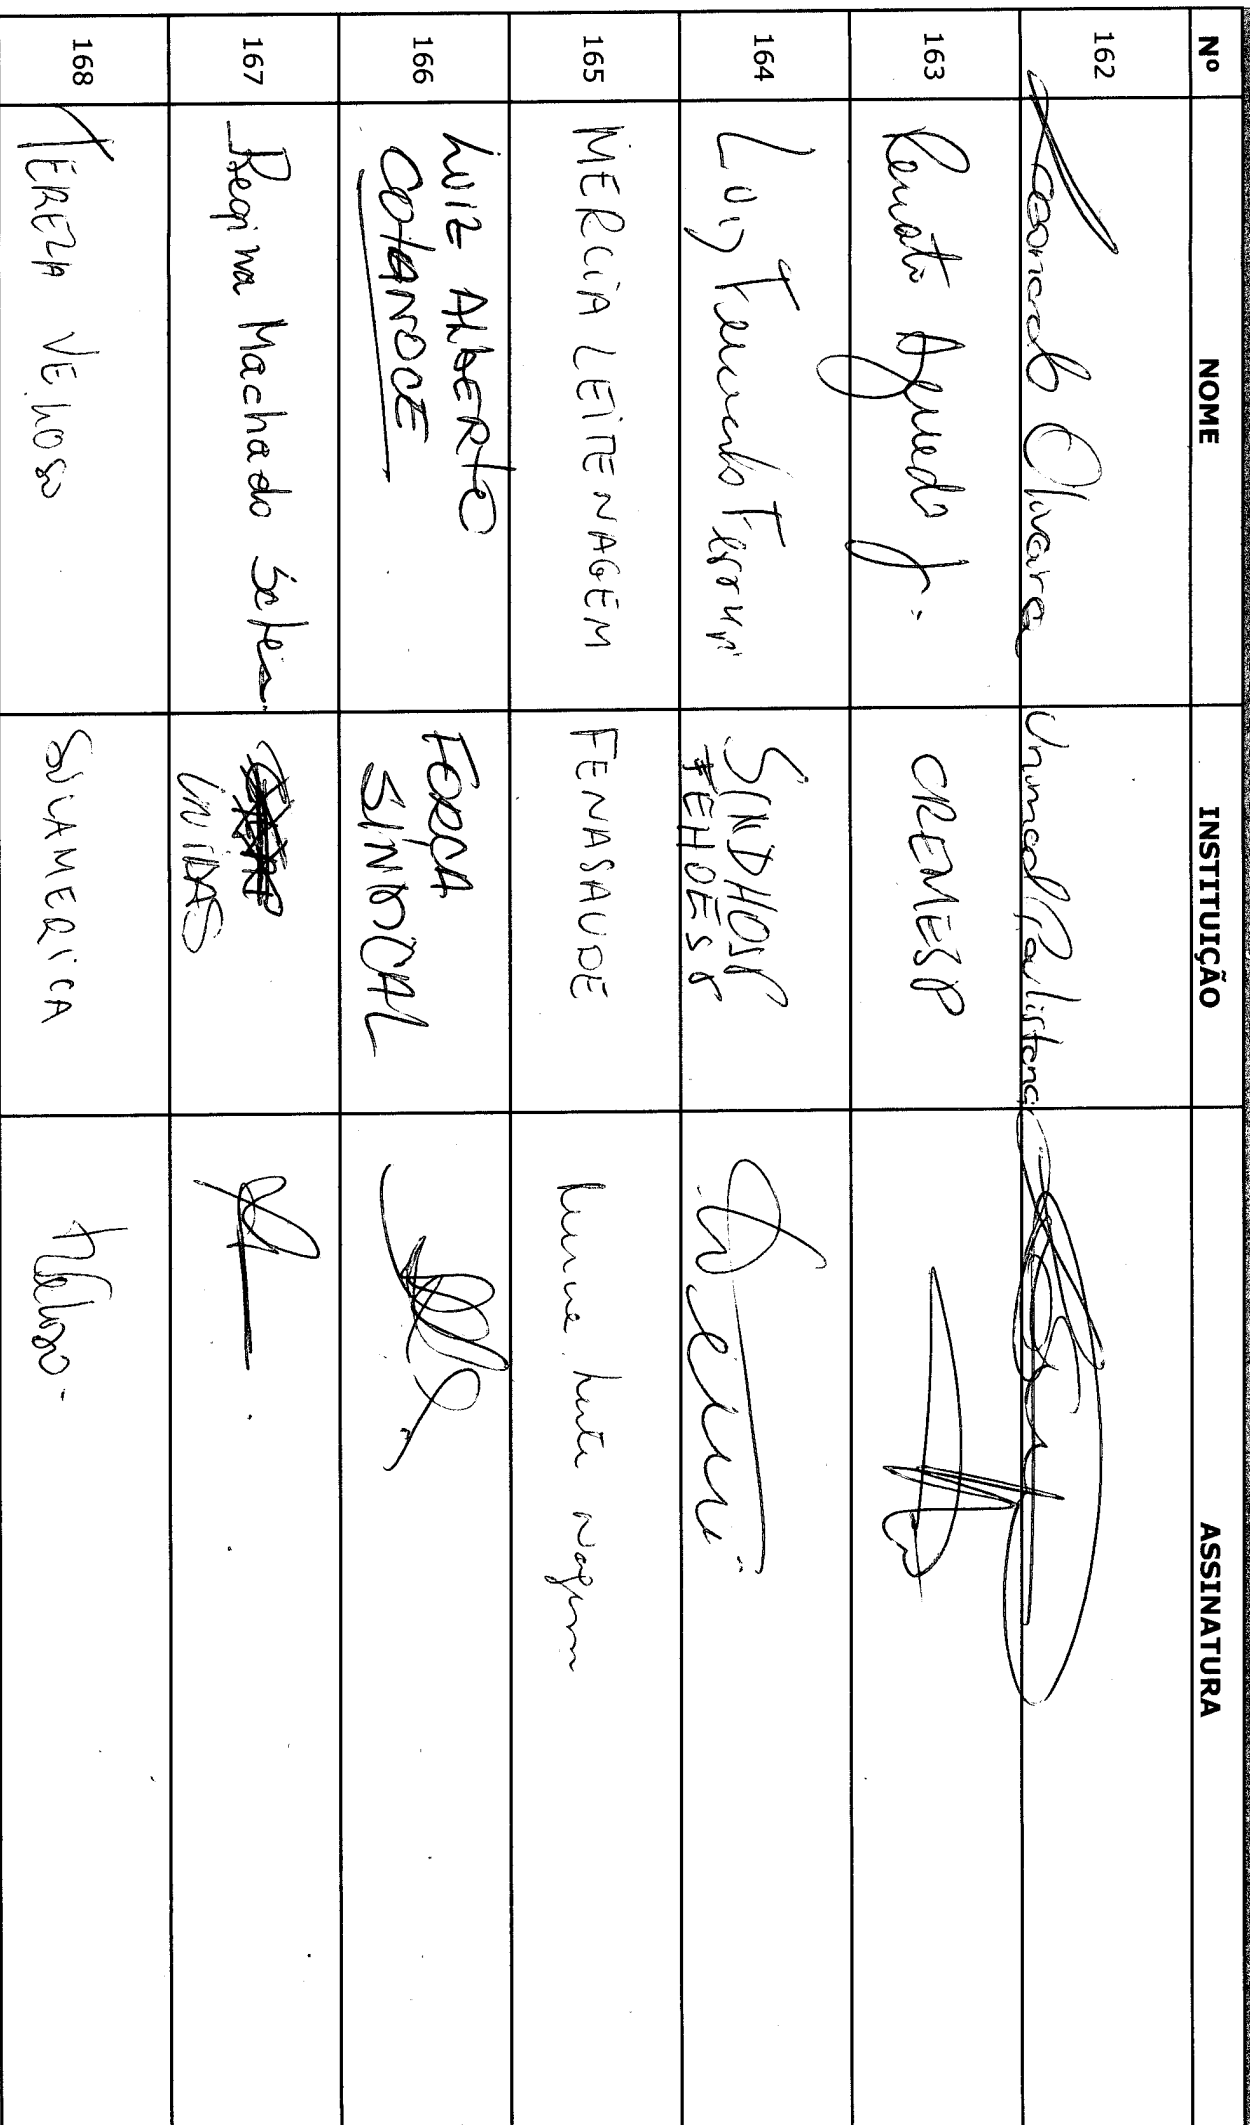 Nº NOME INSTITUIÇÃO ASSINATURA
162 Leonardo Oliveira Unimed Paulistana
163 Renato Azevedo Jr. CREMESP
164 Luiz Fernando Ferrari SINDHOSP
FEHOESP
165 MERCIA LEITE NAGEM FENASAUDE Leite Nagem
166 LUIZ ALBERTO FORÇA
SINDICAL
167 Regina Machado
168 TEREZA VELOSO SULAMERICA TVeloso.